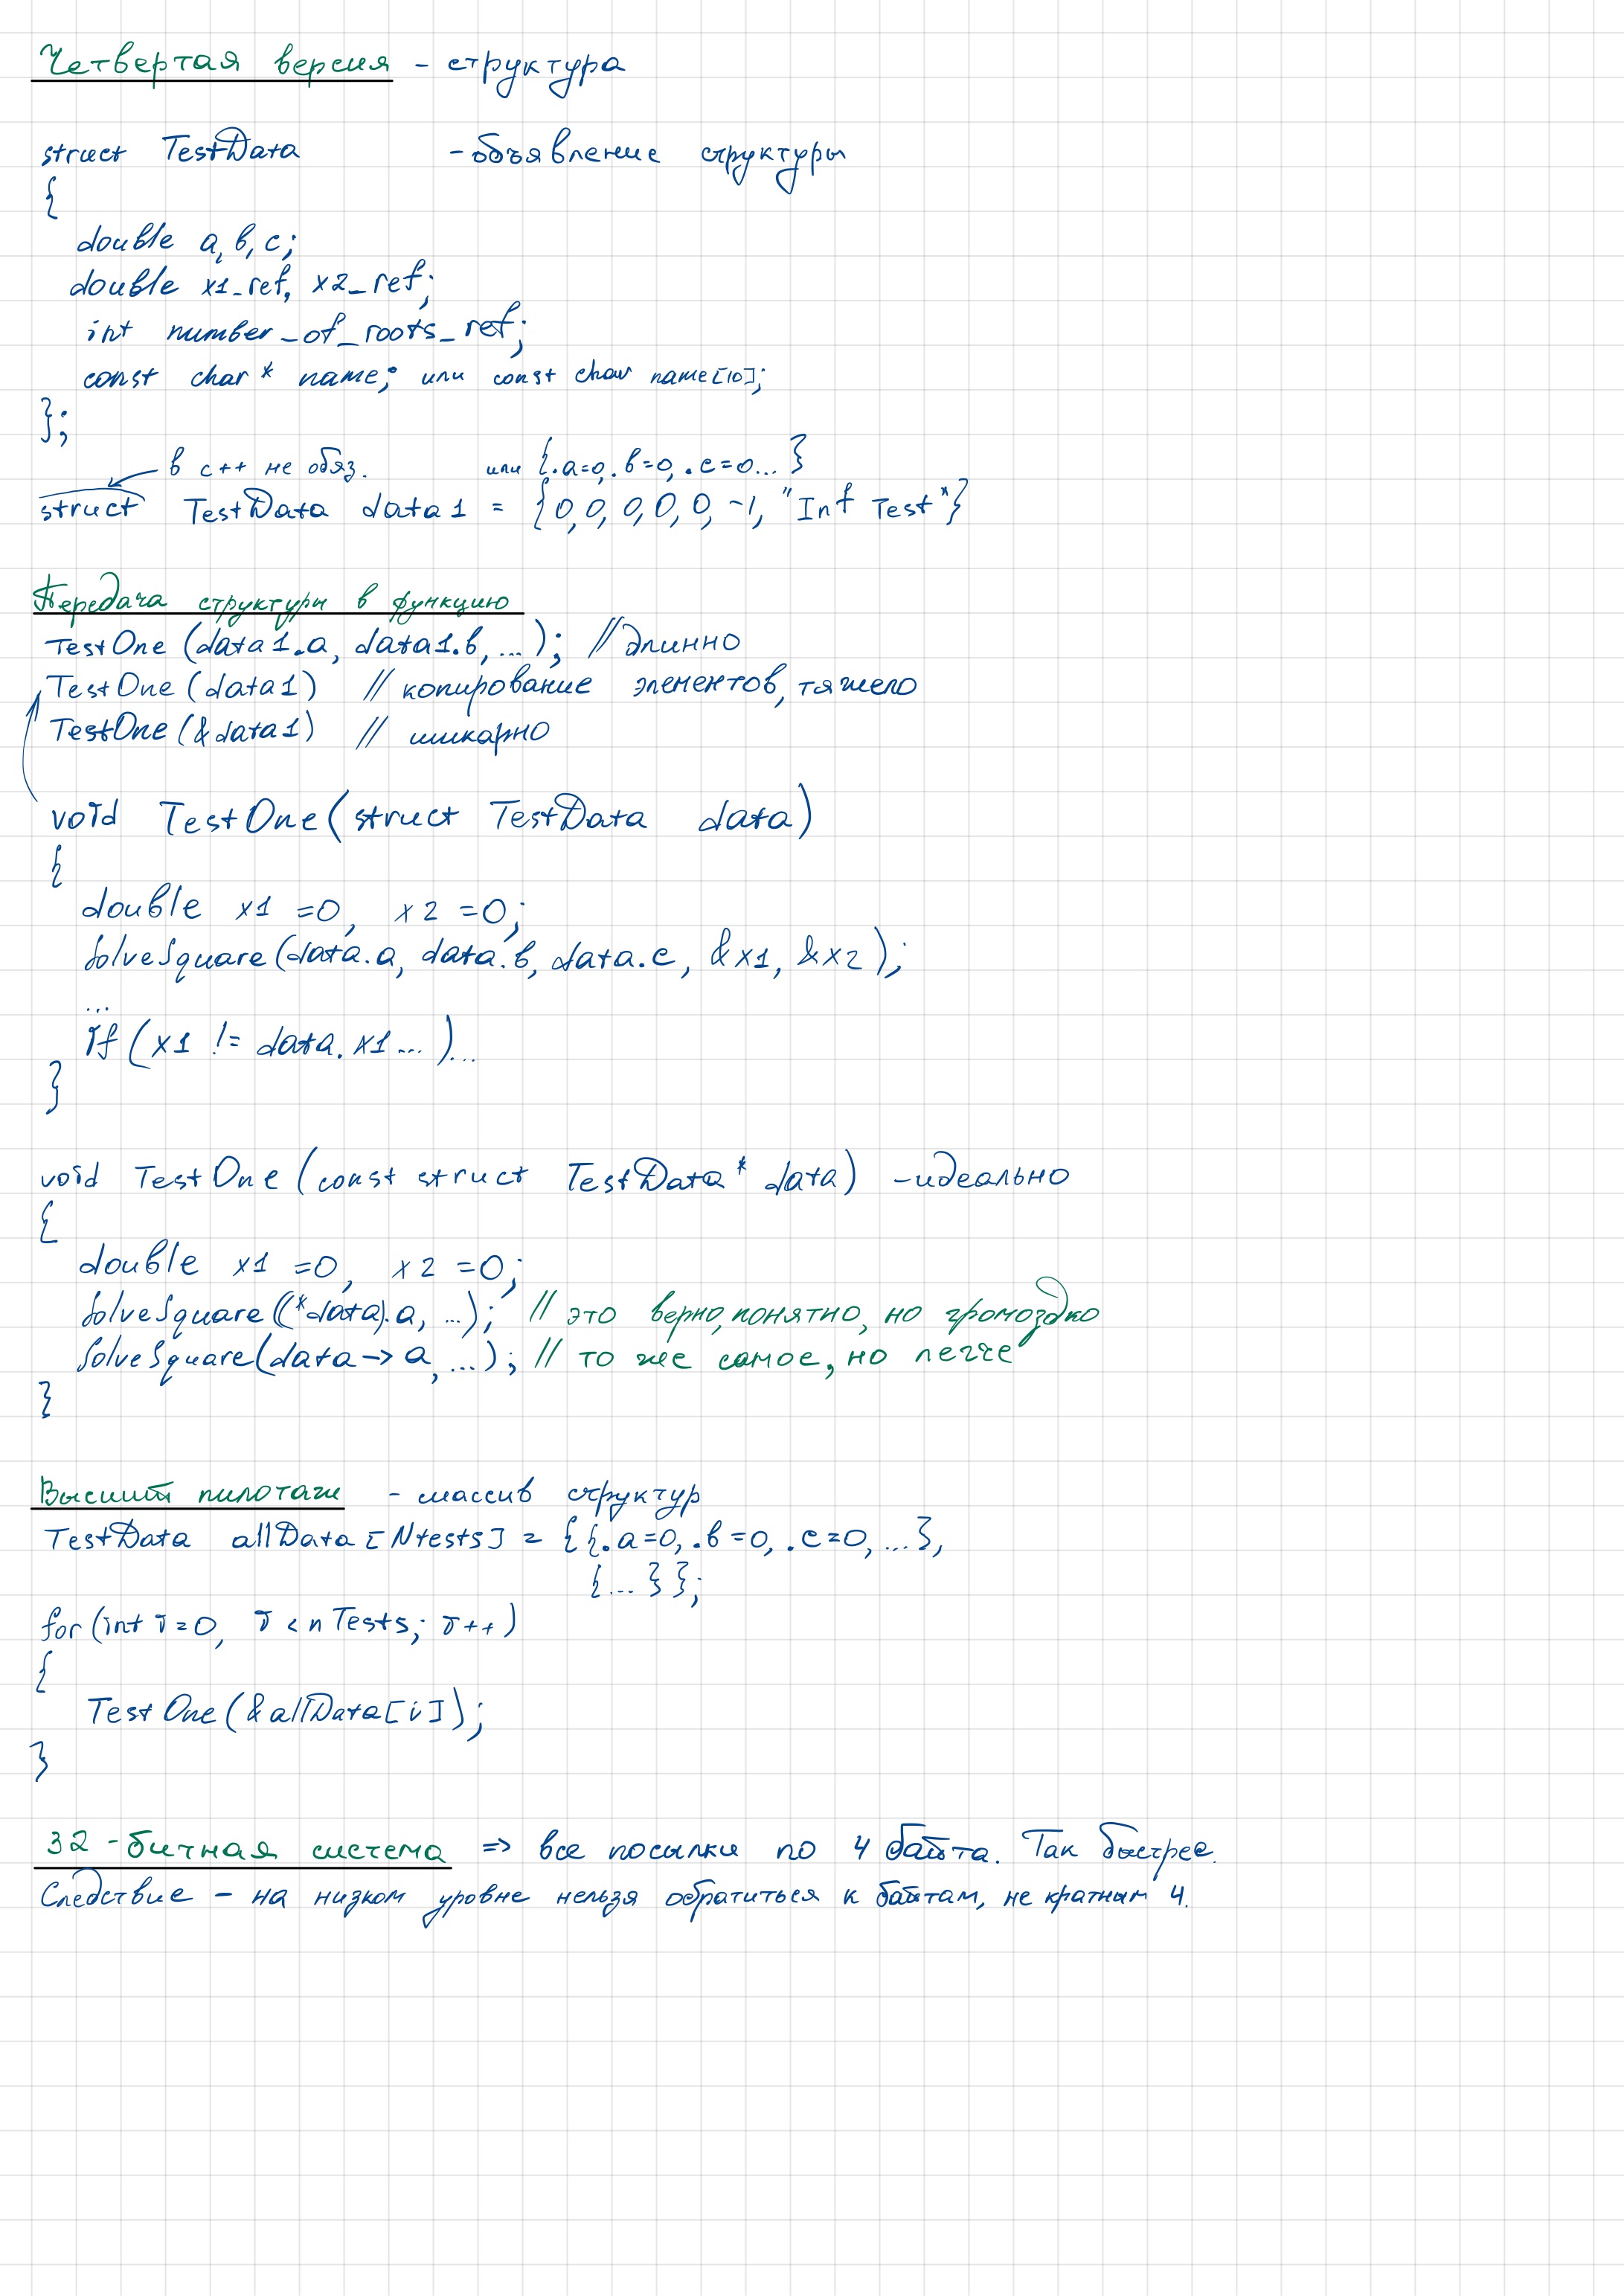 Четвертая версия - структура
struct TestData - объявление структуры
{
double a, b, c;
double x1_ref, x2_ref;
int number_of_roots_ref;
const char* name; или const char name[10];
};
в c++ не обяз. или {.a=0, .b=0, .c=0...}
struct TestData data1 = {0, 0, 0, 0, 0, -1, "Inf Test"}
Передача структуры в функцию
TestOne (data1.a, data1.b, ...); // длинно
TestOne (data1) // копирование элементов, тяжело
TestOne (&data1) // шикарно
void TestOne (struct TestData data)
{
double x1 =0, x2 =0;
SolveSquare (data.a, data.b, data.c, &x1, &x2);
...
if (x1 != data.x1...)...
}
void TestOne (const struct TestData* data) - идеально
{
double x1 =0, x2 =0;
SolveSquare ((*data).a, ...); // это верно, понятно, но громоздко
SolveSquare (data->a, ...); // то же самое, но легче
}
Высший пилотаж - массив структур
TestData allData [Ntests] = {{.a=0, .b=0, .c=0, ...},
{...}};
for (int i=0, i < nTests; i++)
{
TestOne (&allData[i]);
}
32-битная система => все посылки по 4 байта. Так быстрее.
Следствие - на низком уровне нельзя обратиться к байтам, не кратным 4.